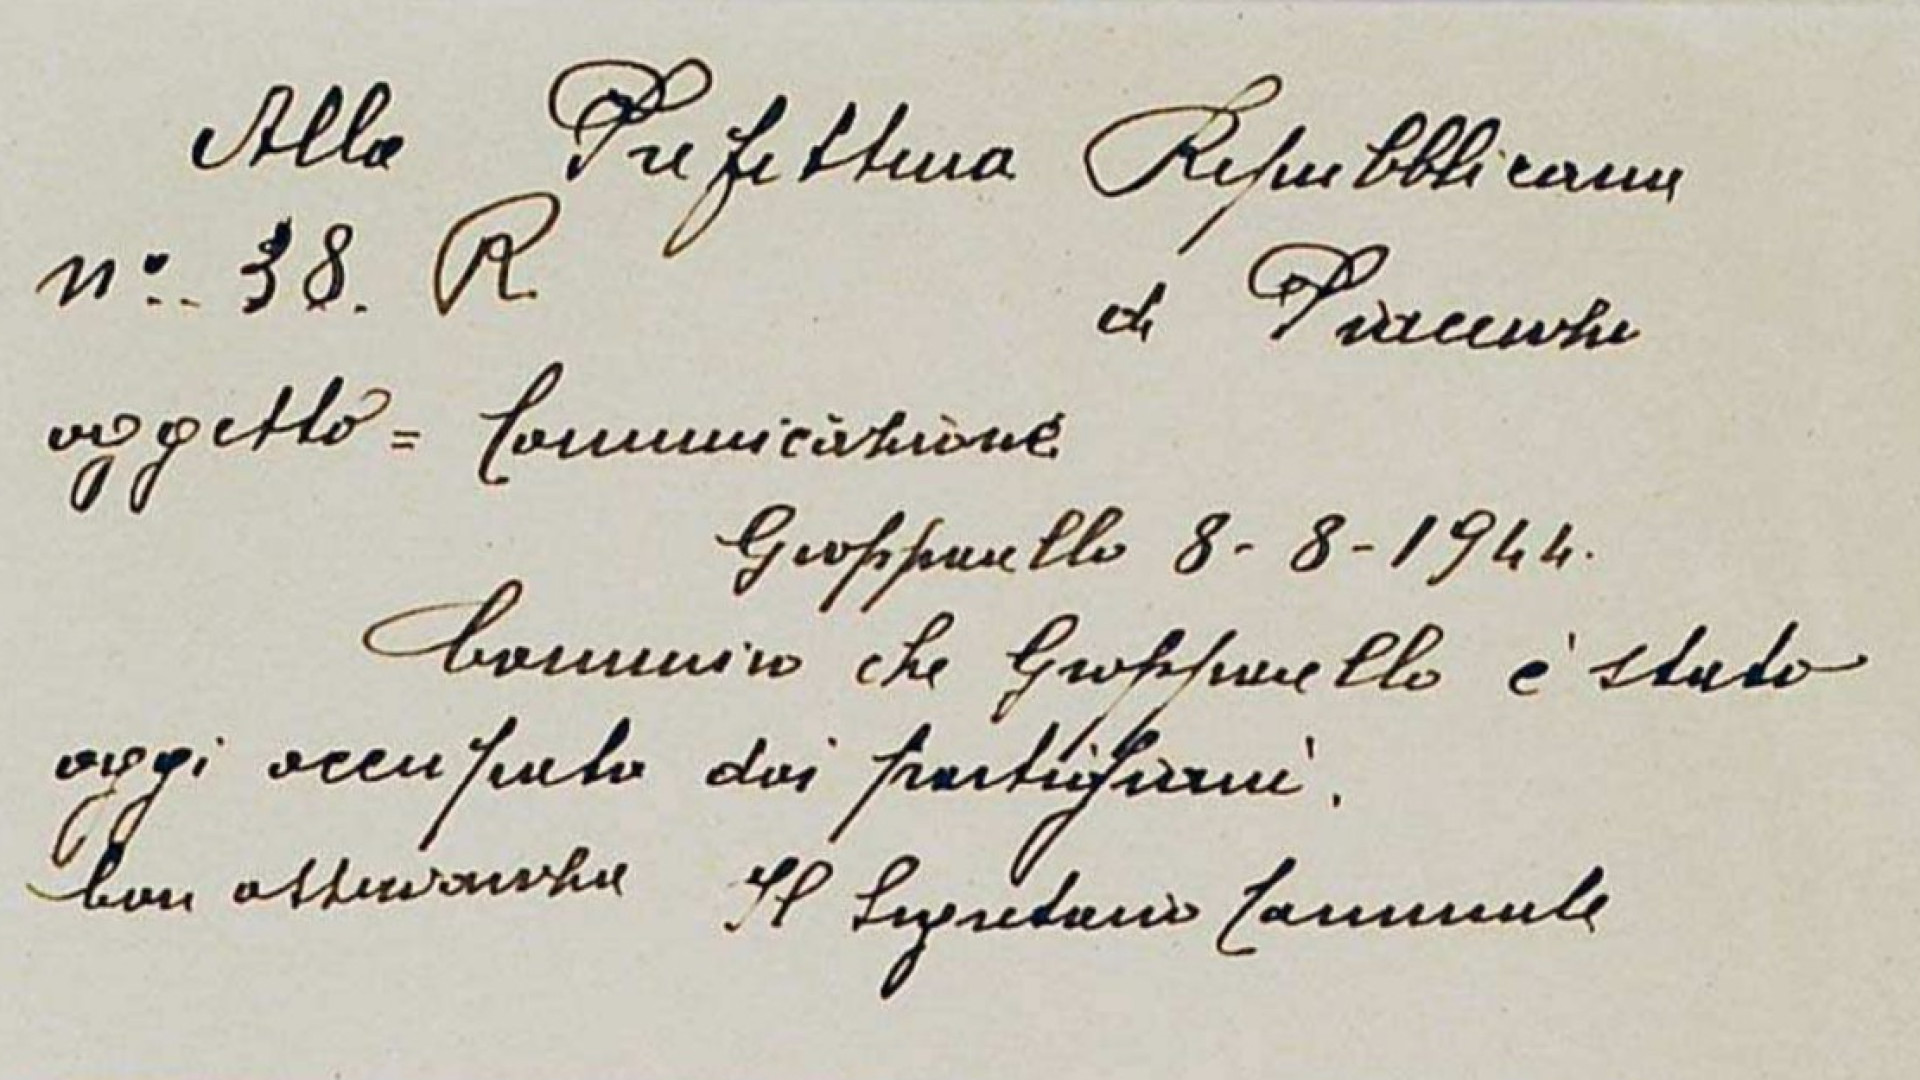 Alla Prefettura Repubblicana
n°. 38. R
di Piacenza
oggetto = Comunicazione
Gropparello 8-8-1944.
Comunico che Gropparello è stato
oggi occupato dai partigiani.
Con osservanza Il Segretario Comunale